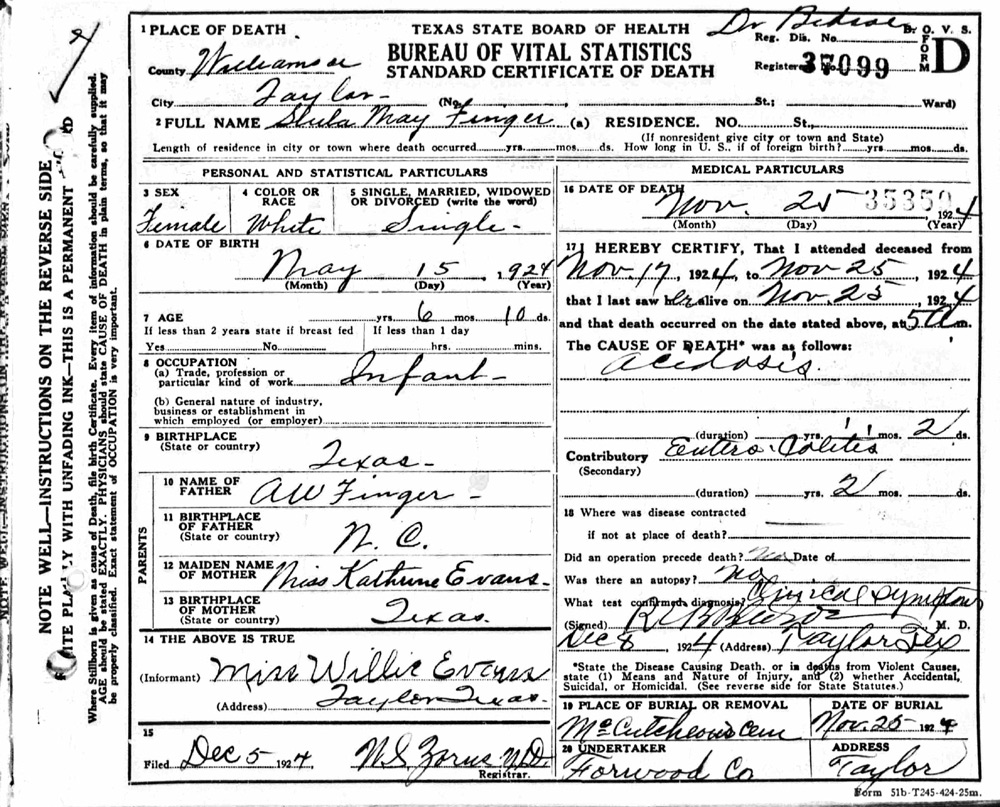 TEXAS STATE BOARD OF HEALTH
BUREAU OF VITAL STATISTICS
STANDARD CERTIFICATE OF DEATH
Dr
Reg. Dis. No. B. O. V. S.
FORM D
Registered 37099
1 PLACE OF DEATH
County Williamson
City Taylor (No. , St.; Ward)
2 FULL NAME Shula May Finger (a) RESIDENCE. NO. St.,
(If nonresident give city or town and State)
Length of residence in city or town where death occurred yrs. mos. ds. How long in U. S., if of foreign birth? yrs. mos. ds.
PERSONAL AND STATISTICAL PARTICULARS
3 SEX 4 COLOR OR RACE 5 SINGLE, MARRIED, WIDOWED OR DIVORCED (write the word)
Female White Single-
6 DATE OF BIRTH
May 15, 1924
(Month) (Day) (Year)
7 AGE yrs. 6 mos. 10 ds.
If less than 2 years state if breast fed If less than 1 day
Yes No. hrs. mins.
8 OCCUPATION
(a) Trade, profession or
particular kind of work Infant-
(b) General nature of industry,
business or establishment in
which employed (or employer)
9 BIRTHPLACE
(State or country) Texas-
PARENTS
10 NAME OF
FATHER AW Finger-
11 BIRTHPLACE
OF FATHER
(State or country) N. C.
12 MAIDEN NAME
OF MOTHER Miss Kathrine Evans-
13 BIRTHPLACE
OF MOTHER
(State or country) Texas.
14 THE ABOVE IS TRUE
(Informant) Miss Willie Evans
(Address) Taylor Texas.
15
Filed Dec 5 1924
Registrar.
MEDICAL PARTICULARS
16 DATE OF DEATH
Nov. 25 35350, 1924
(Month) (Day) (Year)
17 I HEREBY CERTIFY, That I attended deceased from
Nov. 17, 1924, to Nov 25, 1924
that I last saw her alive on Nov. 25, 1924
and that death occurred on the date stated above, at 5 a m.
The CAUSE OF DEATH* was as follows:
Acidosis.
(duration) yrs. mos. 2 ds.
Contributory Entero-Colitis
(Secondary)
(duration) yrs. 2 mos. ds.
18 Where was disease contracted
if not at place of death?
Did an operation precede death? No Date of
Was there an autopsy? No
What test confirmed diagnosis? Clinical Symptoms
(Signed) M. D.
Dec 8, 1924 (Address) Taylor Tex
*State the Disease Causing Death, or in deaths from Violent Causes,
state (1) Means and Nature of Injury, and (2) whether Accidental,
Suicidal, or Homicidal. (See reverse side for State Statutes.)
19 PLACE OF BURIAL OR REMOVAL DATE OF BURIAL
McCutcheons Cem Nov. 25 1924
20 UNDERTAKER ADDRESS
Forwood Co Taylor
Form 51b-T245-424-25m.
NOTE WELL—INSTRUCTIONS ON THE REVERSE SIDE
WITH UNFADING INK—THIS IS A PERMANENT
Where Stillborn is given as cause of Death, file birth Certificate. Every item of information should be carefully supplied.
AGE should be stated EXACTLY. PHYSICIANS should state CAUSE OF DEATH in plain terms, so that it may
be properly classified. Exact statement of OCCUPATION is very important.